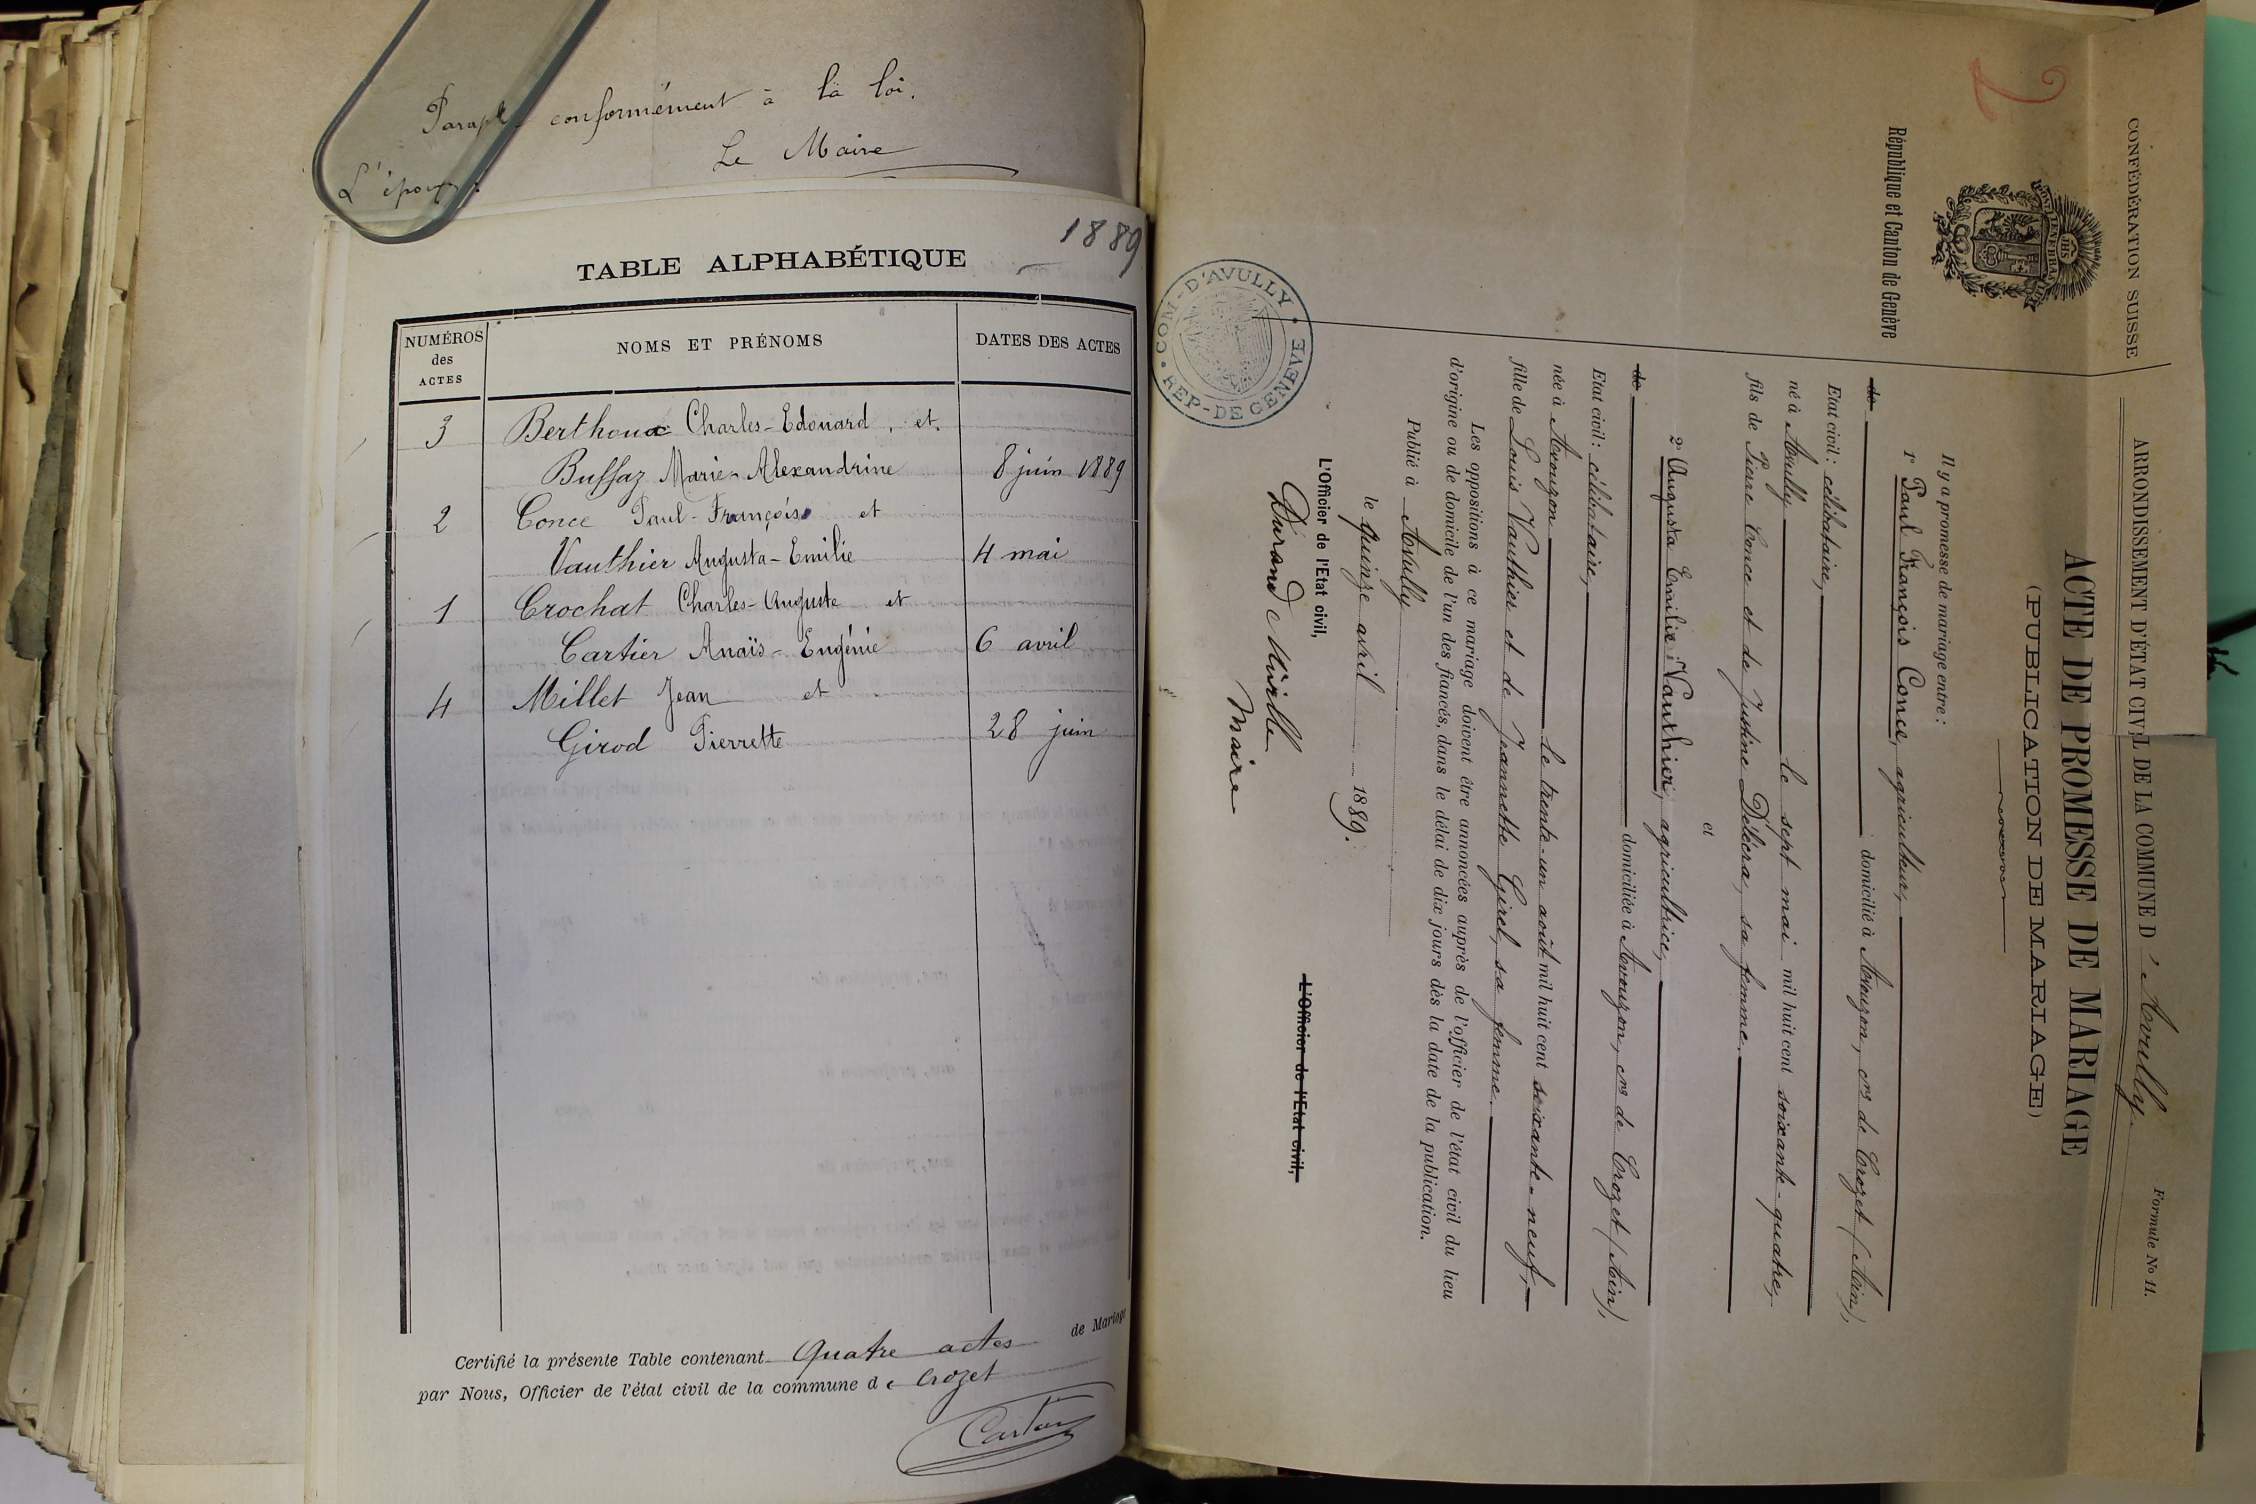 Paraphé conformément à la loi.
Le Maire
L'épouse
1889
TABLE ALPHABÉTIQUE
NUMÉROS des ACTES
NOMS ET PRÉNOMS
DATES DES ACTES
3 Berthoux Charles-Edouard, et.
Buffaz Marie-Alexandrine 8 juin 1889
2 Conce Paul-François et
Vauthier Augusta-Emilie 4 mai
1 Crochat Charles-Auguste et
Cartier Anaïs-Eugénie 6 avril
4 Millet Jean et
Girod Pierrette 28 juin
Certifié la présente Table contenant Quatre actes de Mariage
par Nous, Officier de l'état civil de la commune de Crozet
2
CONFÉDÉRATION SUISSE
POST TENEBRAS LUX
IHS
République et Canton de Genève
Formule No 11.
ARRONDISSEMENT D'ÉTAT CIVIL DE LA COMMUNE D'Avully.
ACTE DE PROMESSE DE MARIAGE
(PUBLICATION DE MARIAGE)
Il y a promesse de mariage entre :
1° Paul François Conce, agriculteur,
de domicilié à Avouzon, cne de Crozet (Ain),
Etat civil : célibataire,
né à Avully le sept mai mil huit cent soixante-quatre,
fils de Pierre Conce et de Justine Déliéra, sa femme.
et
2° Augusta Emilie Vauthier, agricultrice,
de domiciliée à Avouzon, cne de Crozet (Ain),
Etat civil : célibataire,
née à Avouzon le trente-un août mil huit cent soixante-neuf,
fille de Louis Vauthier et de Jeannette Girel, sa femme.
Les oppositions à ce mariage doivent être annoncées auprès de l'officier de l'état civil du lieu
d'origine ou de domicile de l'un des fiancés, dans le délai de dix jours dès la date de la publication.
Publié à Avully
le quinze avril 1889.
L'Officier de l'Etat civil,
L'Officier de l'Etat civil,
Durand
Maire
COM-D'AVULLY • REP-DE GENEVE •